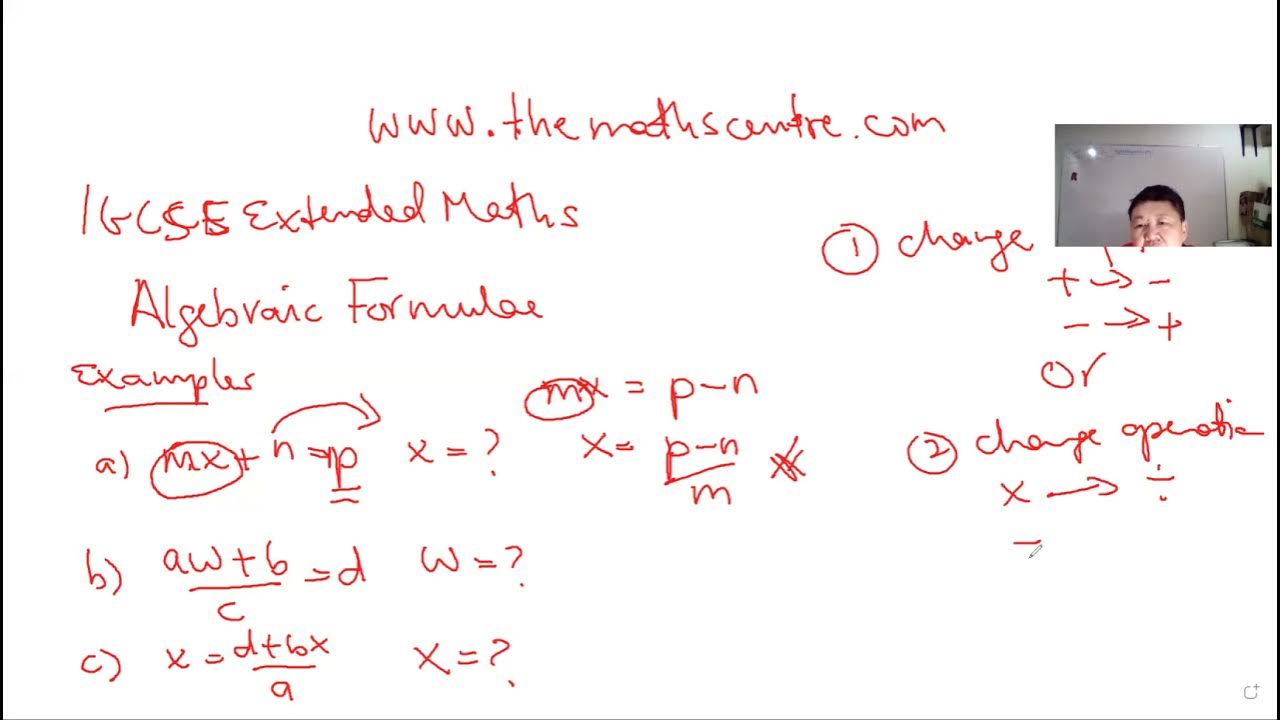 www.themathscentre.com
IGCSE Extended Maths
Algebraic Formulae
Examples
a) mx + n = p   x = ?
mx = p - n
x = (p - n)/m
b) (aw + b)/c = d   w = ?
c) x = (d + bx)/a   x = ?
① change
+ → -
- → +
Or
② change operation
x → ÷